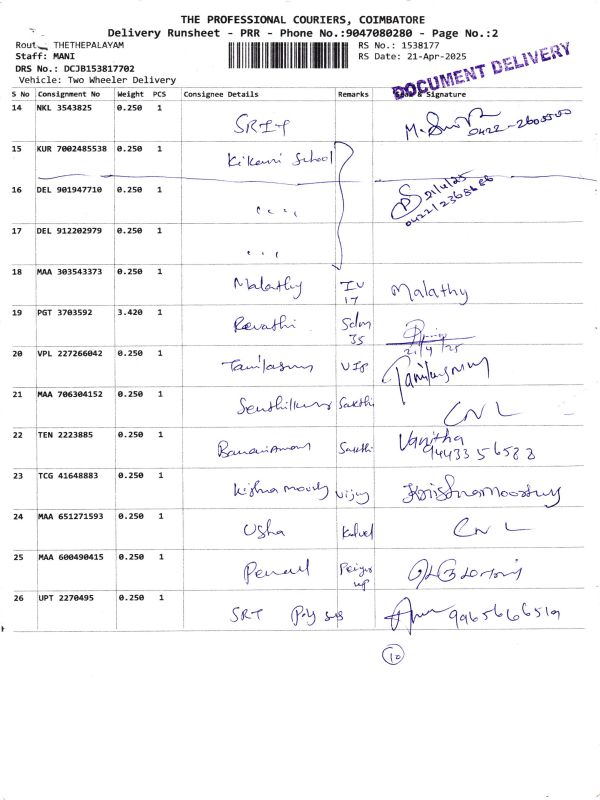 THE PROFESSIONAL COURIERS, COIMBATORE
Delivery Runsheet - PRR - Phone No.:9047080280 - Page No.:2
Rout THETHEPALAYAM RS No.: 1538177
Staff: MANI RS Date: 21-Apr-2025
DRS No.: DCJB153817702
Vehicle: Two Wheeler Delivery
DOCUMENT DELIVERY
S No Consignment No Weight PCS Consignee Details Remarks & Signature
14 NKL 3543825 0.250 1 0422-2605500
15 KUR 7002485538 0.250 1 Kikani School
16 DEL 901947710 0.250 1 " 21/4/25
0422/2368686
17 DEL 912202979 0.250 1 "
18 MAA 303543373 0.250 1 Malathy IU 17 Malathy
19 PGT 3703592 3.420 1 Revathi 35 21/4/25
20 VPL 227266042 0.250 1 VIP
21 MAA 706304152 0.250 1 Senthilkumar Sakthi CNL
22 TEN 2223885 0.250 1 Sakthi Vanitha
9443356588
23 TCG 41648883 0.250 1 Kishna moody Vijay Krishnamoorthy
24 MAA 651271593 0.250 1 Usha CNL
25 MAA 600490415 0.250 1
26 UPT 2270495 0.250 1 SRT Poly 9965666519
10